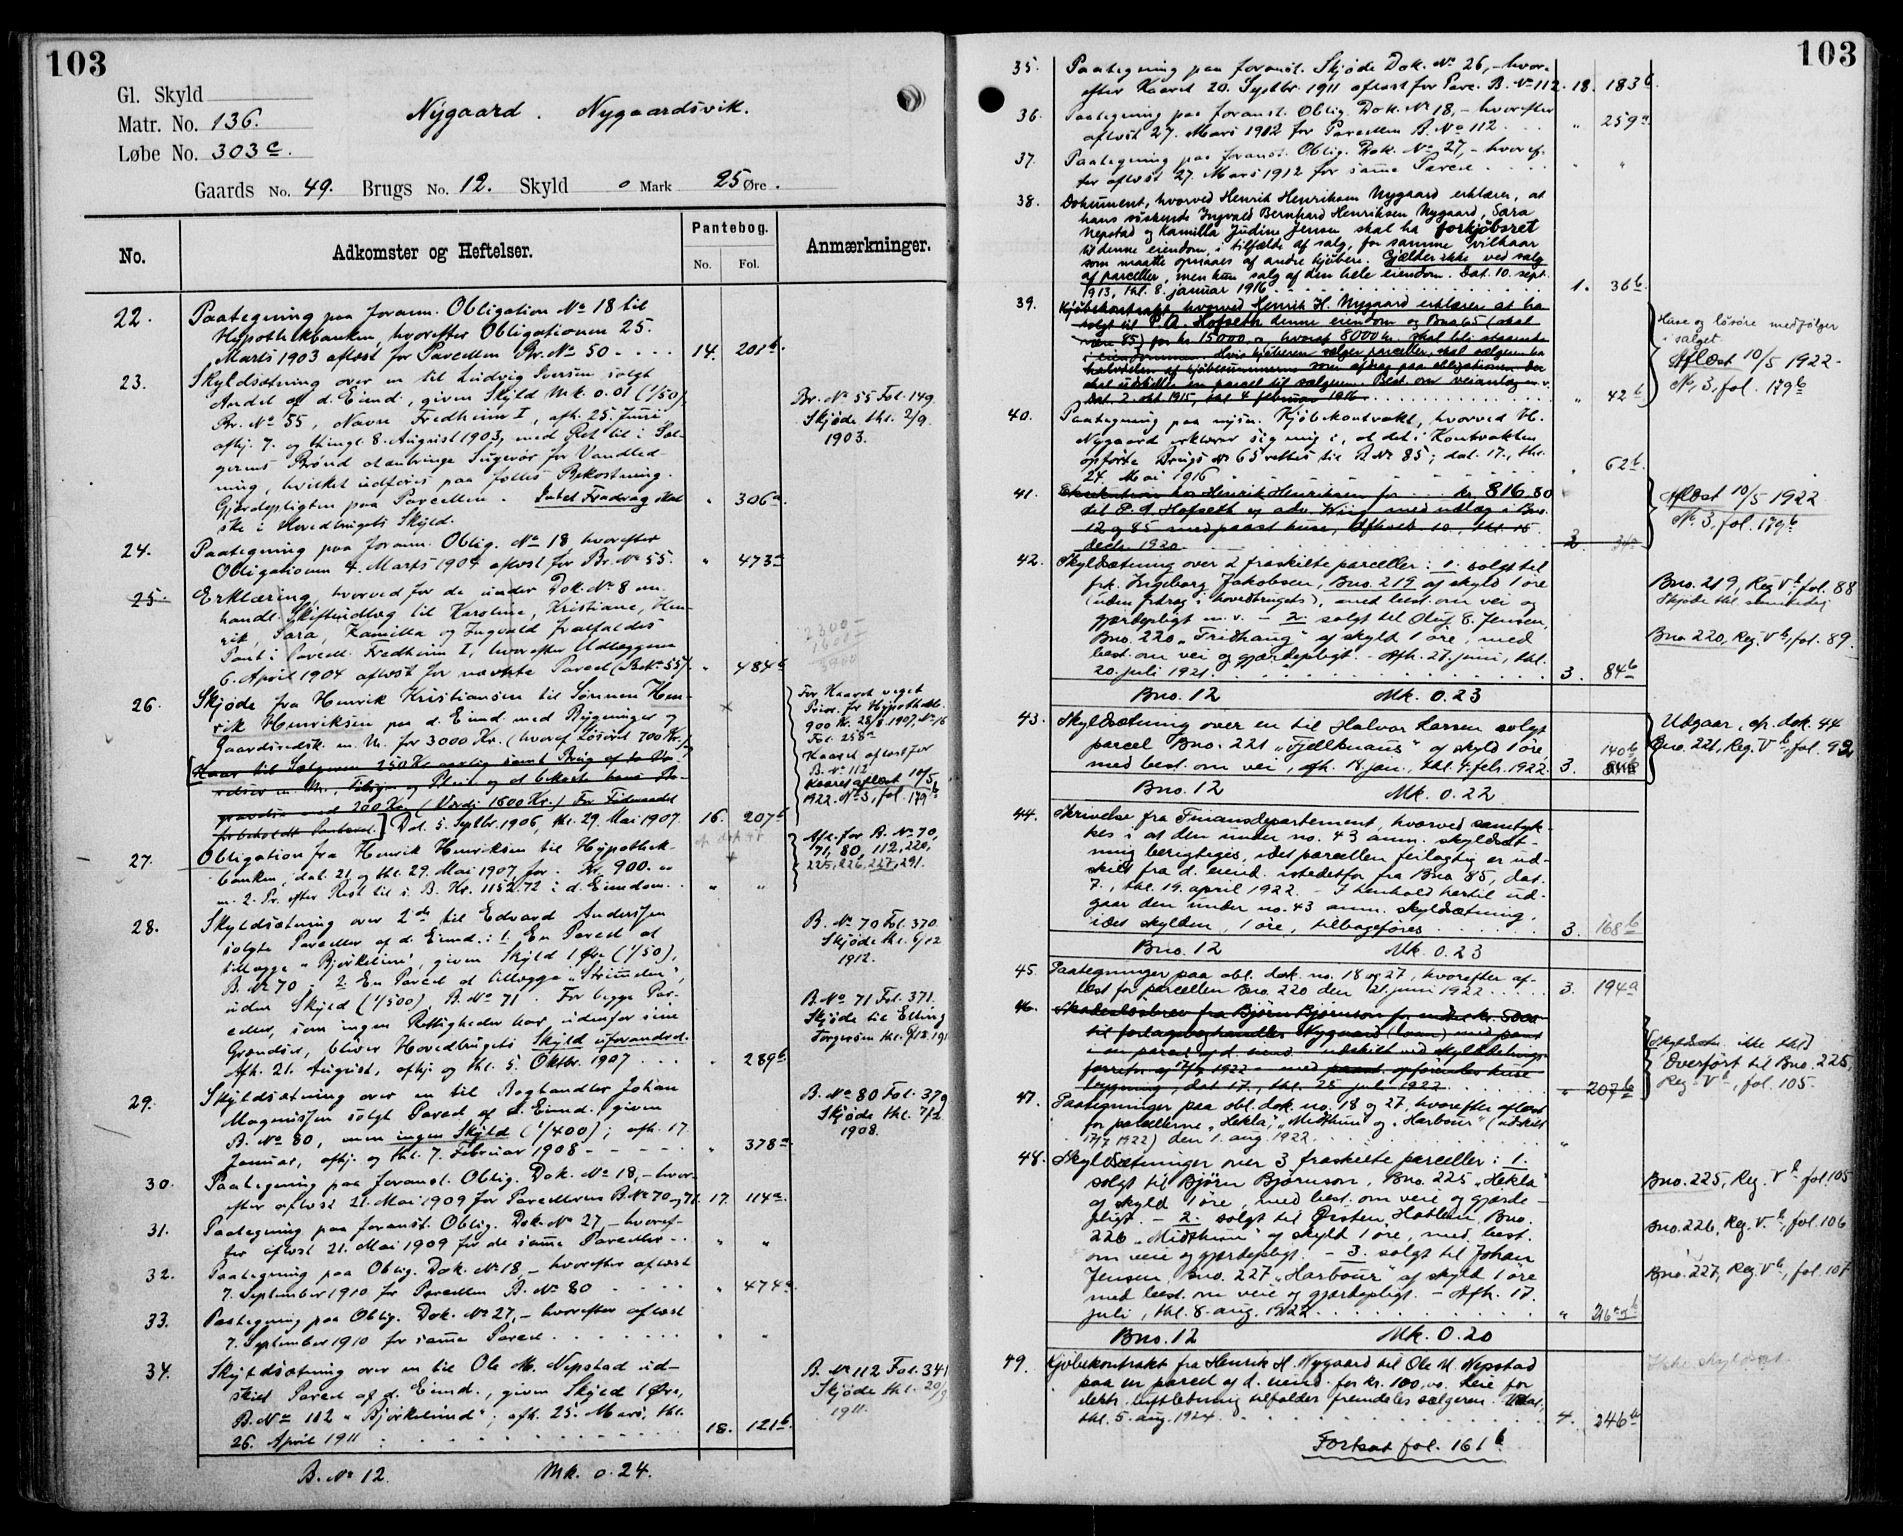 103
Gl. Skyld
Matr. No. 136.
Løbe No. 303c.
Nygaard. Nygaardsvik.
Gaards No. 49. Brugs No. 12. Skyld 0 Mark 25 Øre.
No. Adkomster og Heftelser. Pantebog. No. Fol. Anmærkninger.
22. Paategning paa foran. Obligation No 18 til
Hypothekbanken, hvorefter Obligationen 25.
Marts 1903 aflæst for Parcellen Br. No 50 - 14. 201b
23. Skyldsætning over en til Ludvig Iversen solgt
Andel af d. Eiend., given Skyld Mk. 0.01 (1/50)
Br. No 55, Navn Fredheim I, afh. 25. Juni
afhj. 7. og thingl. 8. August 1903, med Ret til i Sæl-
gerens Brønd at anbringe Sugerør for Vandled-
ning, hvilket udføres paa fælles Bekostning.
Gjerdepligten paa Parcellen. Intet Fradrag skal " 306a
ske i Hovedbrugets Skyld.
Br. No 55 Fol. 149.
Skjøde thl. 2/9
1903.
24. Paategning paa foran. Oblig. No 18 hvorefter
Obligationen 4. Marts 1904 aflæst for Br. No 55. " 473a
25. Erklæring, hvorved for de under Dok. No 8 om-
handl. Skifteudlæg til Karoline, Kristiane, Hen-
rik, Sara, Kamilla og Ingvald frafaldes
Pant i Parcell. Fredheim I, hvorefter Udlæggene
6. April 1904 aflæst for nævnte Parcel (B. No 55). " 484a
2300-
1600-
3900
26. Skjøde fra Henrik Kristiansen til Sønnen Hen-
rik Henriksen paa d. Eiend. med Bygninger og
Gaardsredsk. m. M. for 3000 Kr. (hvoraf Løsøret 700 Kr.)
forbeholdt Panteret.] Dat. 5. Septbr. 1906, thl. 29. Mai 1907 16. 207b
For Kaaret veget
Prior. for Hypothekb.
900 Kr. 28/8. 1907 No 16
Fol. 258a
Kaaret aflæst for
B. No 112.
Kaaret aflæst 10/5
1922. No 3, fol. 179b
27. Obligation fra Henrik Henriksen til Hypothek-
banken, dat. 21. og thl. 29. Mai 1907 for Kr. 900.00
m. 2. Pr. efter Rest til i. B. Kr. 1152.72 i d. Eiendom. " "
Afl. for B. No 70,
71, 80, 112, 220,
225, 226, 227, 291.
28. Skyldsætning over 2de til Edvard Anderssen
solgte Parceller af d. Eiend.: 1. En Parcel at
tillægge "Bjørkeliun", given Skyld 1 Øre (1/50),
B. No 70. 2. En Parcel at tillægge "Strimmelen",
uden Skyld (1/500), B. No 71. For begge Par-
celler, som ingen Rettigheder har udenfor sine
Grændser, bliver Hovedbrugets Skyld uforandret.
Afh. 21. August, afhj. og thl. 5. Oktbr. 1907 " 289b
B. No 70 Fol. 370.
Skjøde thl. 6/12
1912.
B. No 71 Fol. 371.
Skjøde til Elling
Torgersen thl. 6/12 191
29. Skyldsætning over en til Boghandler Johan
Magnussen solgt Parcel af d. Eiend., given
B. No 80, men ingen Skyld (1/400); afh. 17.
Januar, afhj. og thl. 7. Februar 1908 " 378a
B. No 80 Fol. 379
Skjøde thl. 7/2
1908.
30. Paategning paa foranst. Oblig. Dok. No 18, - hvor-
efter aflæst 21. Mai 1909 for Parcellerne B. No 70 og 71. 17. 114a
31. Paategning paa foranst. Oblig. Dok. No 27, - hvoref-
ter aflæst 21. Mai 1909 for de samme Parceller. " "
32. Paategning paa Oblig. Dok. No 18, - hvorefter aflæst
7. September 1910 for Parcellen B. No 80 " 474a
33. Paategning paa Oblig. Dok. No 27, - hvorefter aflæst
7. September 1910 for samme Parcel. " "
34. Skyldsætning over en til Ole M. Nepstad ud-
skilt Parcel af d. Eiend., given Skyld 1 Øre,
B. No 112 "Bjørkelund"; afh. 25. Mars, thl.
26. April 1911 18. 121b
B. No 112 Fol. 341
Skjøde thl. 20/9
1911.
B. No 12. Mk. 0.24.
103
35. Paategning paa foranst. Skjøde Dok. No 26, - hvor-
efter Kaaret 20. Septbr. 1911 aflæst for Parc. B. No 112. 18. 183b
36. Paategning paa foranst. Oblig. Dok. No 18, - hvorefter
aflæst 27. Mars 1912 for Parcellen B. No 112. " 259a
37. Paategning paa foranst. Oblig. Dok. No 27, - hvoref-
ter aflæst 27. Mars 1912 for samme Parcel " "
38. Dokument, hvorved Henrik Henriksen Nygaard erklærer, at
hans søskende Ingvald Bernhard Henriksen Nygaard, Sara
Nepstad og Kamilla Judine Jensen skal ha forkjøbsret
til denne eiendom, i tilfælde af salg, for samme vilkaar
som maatte opnaaes af andre kjøbere. Gjælder ikke ved salg
af parceller, men kun salg af den hele eiendom. Dat. 10. sept.
1913, thl. 8. januar 1916 1. 36b
39. Kjøbekontrakt hvorved Henrik H. Nygaard erklærer at ha
solgt til P. A. Hofseth denne eiendom og Bno 65 (skal
være 85) for kr. 15000.00 hvoraf 8000 kr. skal bli staaende
i eiendommen. Hvis kjøberen sælger parceller, skal sælgeren ha
halvdelen af kjøbesummerne som afdrag paa obligationen. Der
skal udskilles en parcel til sælgeren. Best. om veianlæg m. v.
Dat. 2. okt. 1915, thl. 4. februar 1916 " 42b
Huse og løsøre medfølger
i salget
Aflæst 10/5 1922.
No 3, fol. 179b
40. Paategning paa nysn. Kjøbekontrakt, hvorved H.
Nygaard erklærer sig enig i, at det i Kontrakten
opførte Brugs No 65 rettes til B. No 85; dat. 17., thl.
24. Mai 1916 " 62b
41. Eksekution hos Henrik Henriksen for kr. 816.80
til P. A. Hofseth og adv. Wiig med udlæg i Bno.
12 og 85 med paast. huse. Afholdt 10., thl. 15.
decbr. 1920 2.
Aflæst 10/5 1922
No 3, fol. 179b
42. Skyldsætning over 2 fraskilte parceller: 1. solgt til
frk. Ingeborg Jakobsen, Bno. 219 af skyld 1 øre
(uden fradrag i hovedbruget), med best. om vei og
gjærdepligt m. v. - 2. solgt til Oluf E. Jensen,
Bno. 220 "Fridhaug" af skyld 1 øre, med
best. om vei og gjærdepligt. Afh. 27. juni, thl.
20. juli 1921. 3. 84b
Bno. 219, Reg. Vb fol. 88
Skjøde thl. samme dag
Bno. 220, Reg. Vb, fol. 89.
Bno. 12 Mk. 0.23
43. Skyldsætning over en til Halvor Larsen solgt
parcel Bno. 221 "Fjellknaus" af skyld 1 øre
med best. om vei, afh. 14. jan., thl. 4. feb. 1922. 3. 140b
Utgaar, cfr. dok. 44
Bno. 221, Reg. Vb, fol. 92
Bno. 12 Mk. 0.22
44. Skrivelse fra Finansdepartement, hvorved samtyk-
kes i at den under no. 43 anm. skyldsæt-
ning berigtiges, idet parcellen feilagtig er ud-
skilt fra d. eiend. istedetfor fra Bno 85, dat.
7., thl. 19. april 1922. - I henhold hertil ud-
gaar den under no. 43 anm. skyldsætning,
idet skylden, 1 øre, tilbageføres 3. 168b
Bno. 12 Mk. 0.23
45. Paategninger paa obl. dok. no. 18 og 27, hvorefter af-
læst for parcellen Bno. 220 den 21. juni 1922 3. 194a
46. Skadesløsbrev fra Bjørn Bjørnson for indtil kr.
til forlagsboghandler Nygaard (Ivar) med pant
i en parcel af d. eiend. udskilt ved skylddelings-
forretn. af 17/7 1922 - med paast. opførendes huse
bygning, dat. 17., thl. 25. juli 1922 " 207b
(Skyldsætn. ikke thl.)
Overført til Bno. 225,
Reg. Vb, fol. 105.
47. Paategninger paa obl. dok. no. 18 og 27, hvorefter aflæst
for parcellerne "Hekla", "Midthun" og "Harbour" (udskilt
17/7 1922) den 1. aug. 1922 "
48. Skyldsætninger over 3 fraskilte parceller: 1.
solgt til Bjørn Bjørnson, Bno. 225 "Hekla"
af skyld 1 øre, med best. om veie og gjærde-
pligt. - 2. solgt til Ørsten Hatlem, Bno.
226 "Midthun" af skyld 1 øre, med best.
om veie og gjærdepligt. - 3. solgt til Johan
Jensen, Bno. 227 "Harbour" af skyld 1 øre
med best. om veie og gjærdepligt. - Afh. 17.
juli, thl. 8. aug. 1922
Bno. 225, Reg. Vb fol 105
Bno. 226, Reg. Vb, fol. 106
Bno. 227, Reg. Vb, fol. 107
Bno. 12 Mk. 0.20
49. Kjøbekontrakt fra Henrik H. Nygaard til Ole M. Nepstad
paa en parcel af d. eiend. for kr. 100,00. Leie for
elektr. luftledning tilfalder fremdeles sælgeren.
thl. 5. aug. 1924. 4. 246b
Ikke skyldsat
Fortsat fol. 161b